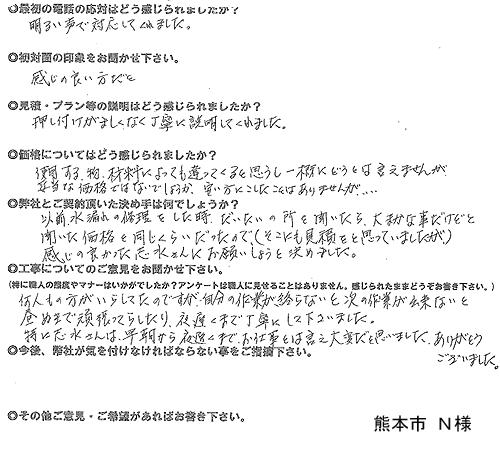 ◎最初の電話の応対はどう感じられましたか?
明るい声で対応してくれました。
◎初対面の印象をお聞かせ下さい。
感じの良い方だと
◎見積・プラン等の説明はどう感じられましたか?
押し付けがましくなく丁寧に説明してくれました。
◎価格についてはどう感じられましたか?
使用する物、材料によっても違ってくると思うし一概にどうとは言えませんが
妥当な価格ではないでしょうか、安い方にこしたことはありませんが....
◎弊社とご契約頂いた決め手は何でしょうか?
以前、水漏れの修理をした時、だいたいの所を聞いたら、大切な事だけどと
聞いた価格と同じくらいだったので(そこにも見積をと思っていましたが)
感じの良かった志水さんにお願いしようと決めました。
◎工事についてのご意見をお聞かせ下さい。
(特に職人の態度やマナーはいかがでしたか?アンケートは職人に見せることはありません。感じられたままどうぞお書き下さい。)
何人もの方がいらしてたのですが、自分の作業が終らないと次の作業が出来ないと
昼ぬきで頑張ってらしたり、夜遅くまで丁寧にして下さいました。
特に志水さんは、早朝から夜遅くまで、お仕事とは言え大変だと思いました。ありがとう
ございました。
◎今後、弊社が気を付けなければならない事をご指摘下さい。
◎その他ご意見・ご希望があればお書き下さい。
熊本市 N様